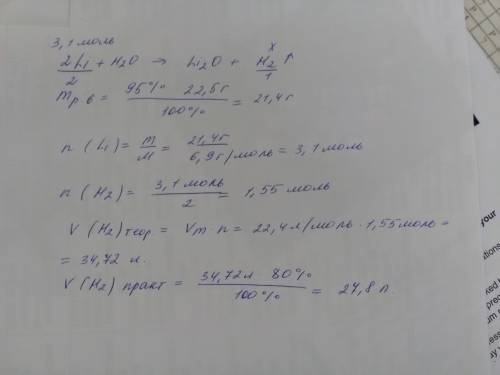 3,1 моль
2Li + H2O → Li2O + H2 ↑
x
2 1
m р.в = 95% 22,5г / 100% = 21,4г
n (Li) = m / M = 21,4г / 6,9г/моль = 3,1 моль
n (H2) = 3,1 моль / 2 = 1,55 моль
V (H2) теор = Vm n = 22,4 л/моль · 1,55 моль =
= 34,72 л.
V (H2) практ = 34,72 л 80% / 100% = 27,8 л.
your